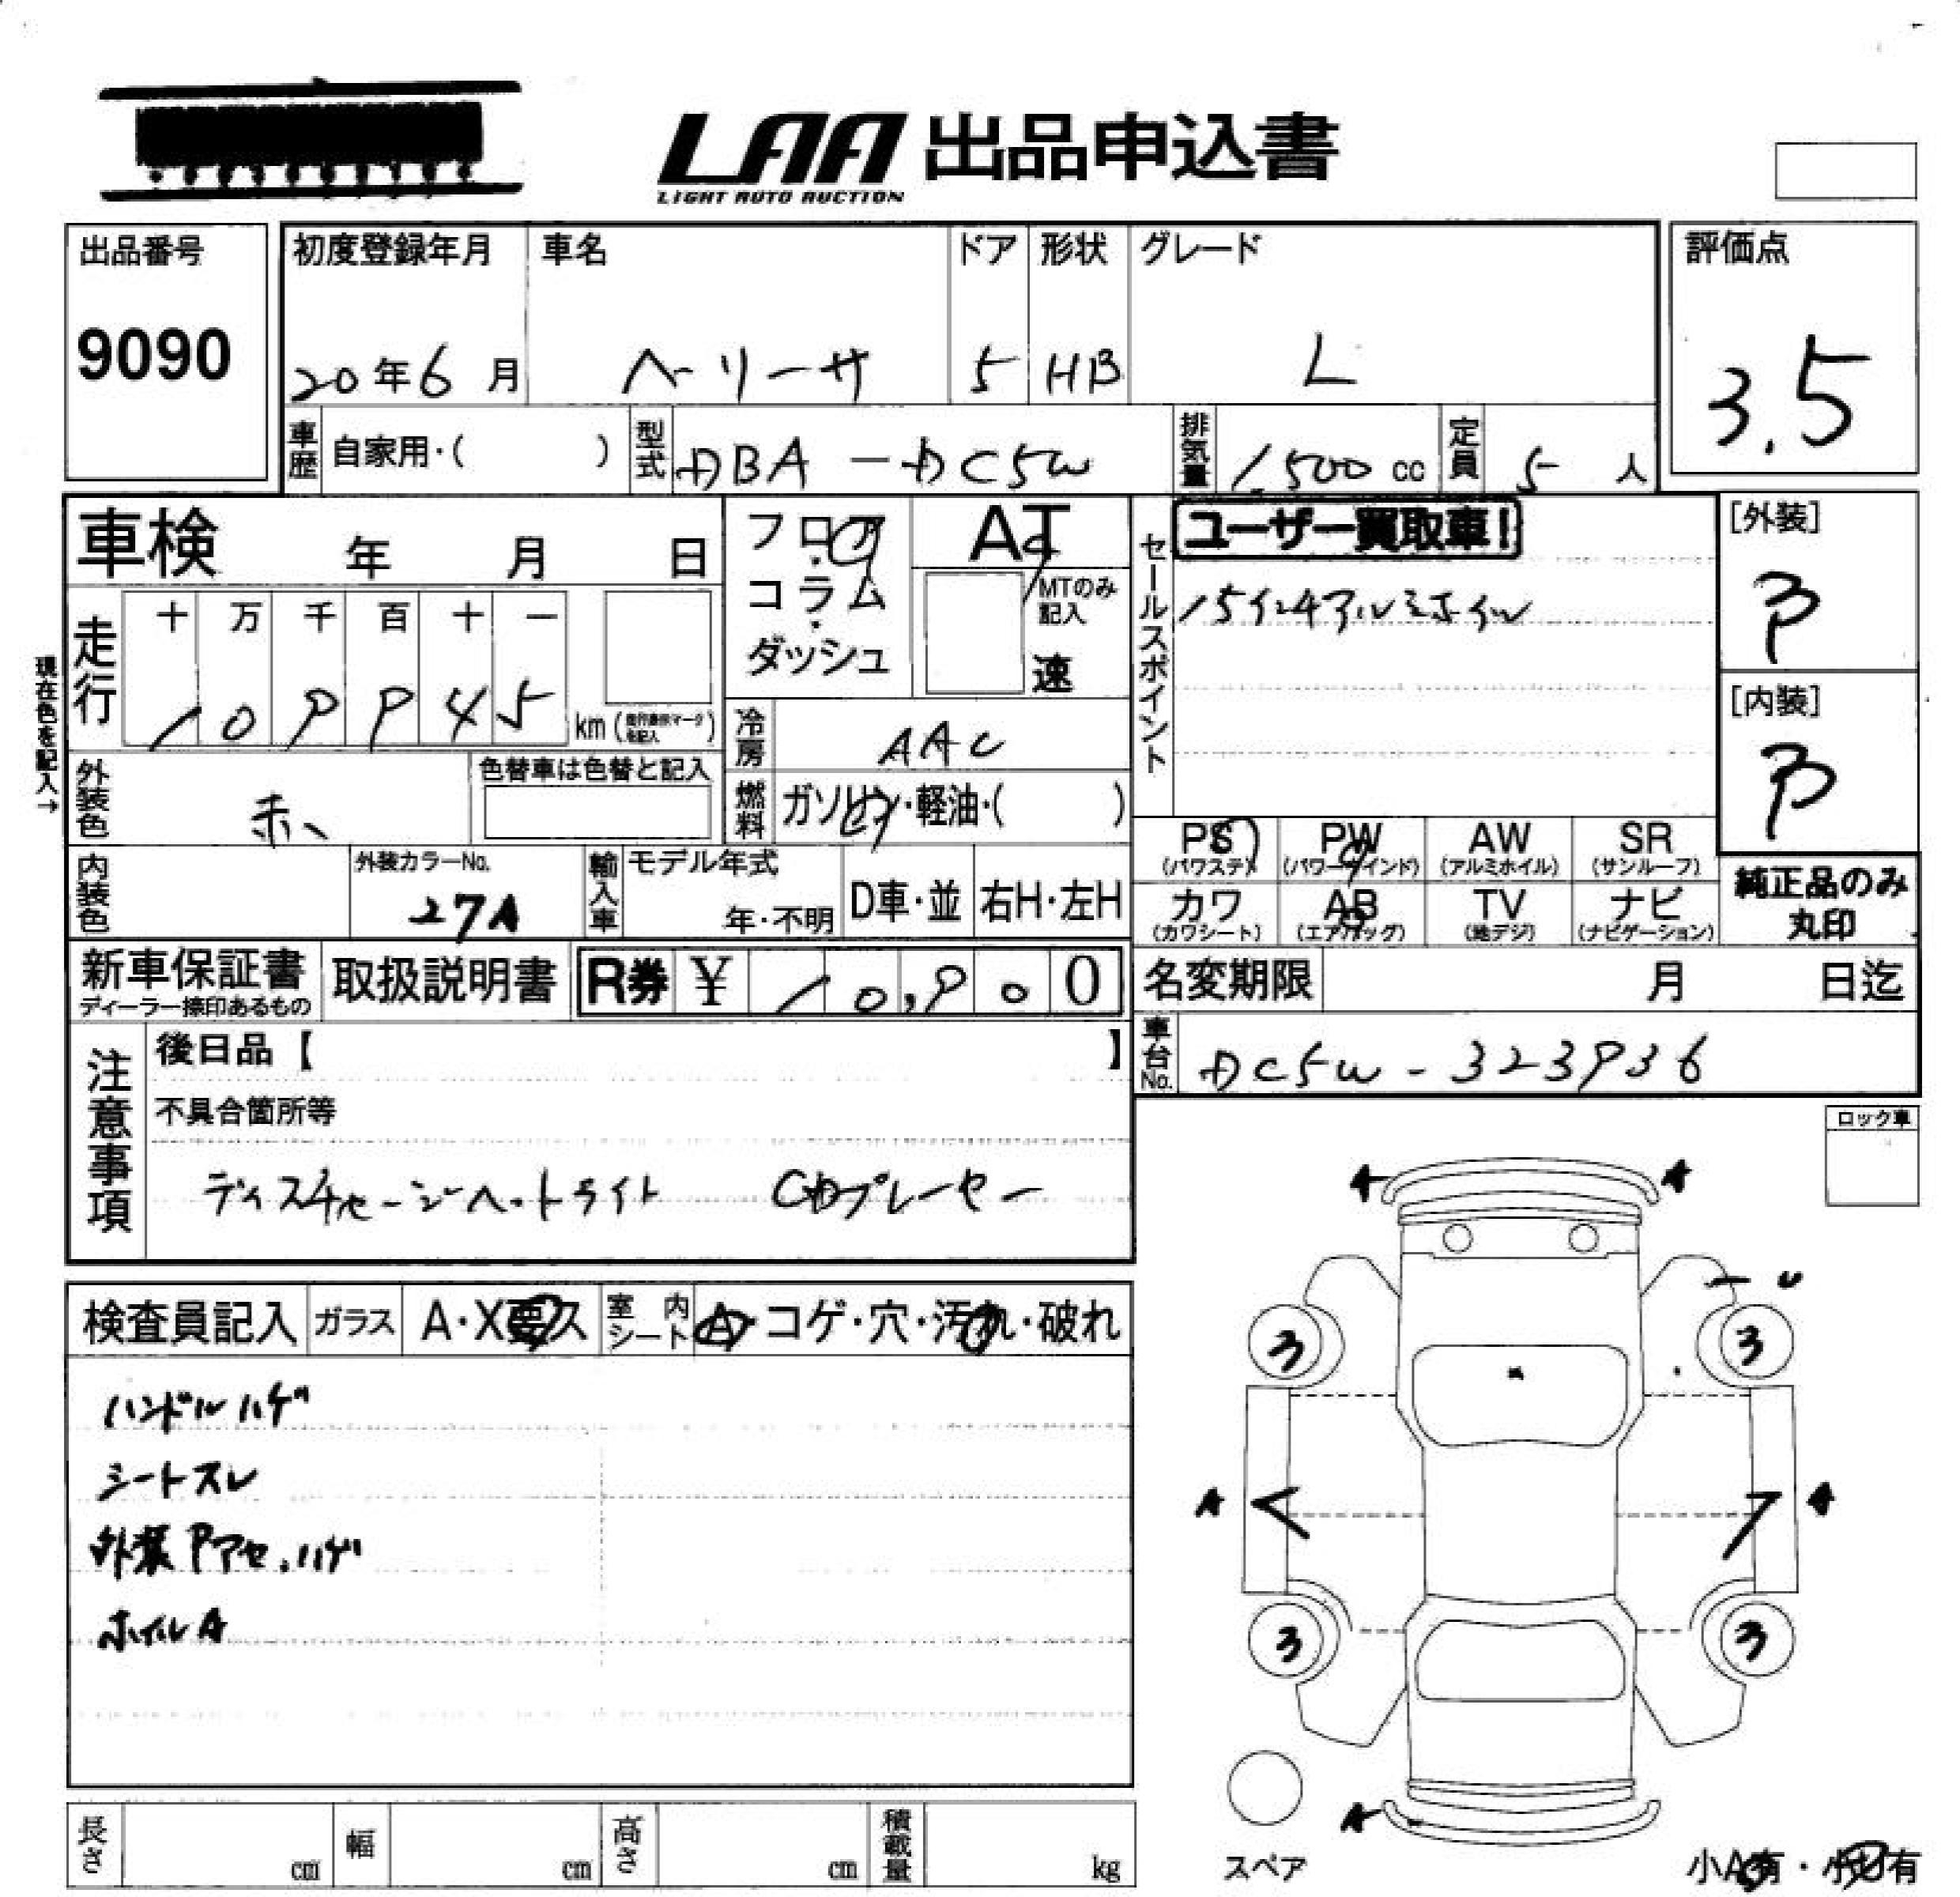 LAA 出品申込書
LIGHT AUTO AUCTION
出品番号
9090
初度登録年月
20年6月
車名
ベリーサ
ドア
5
形状
HB
グレード
L
評価点
3.5
車歴 自家用・( )
型式 DBA-DC5W
排気量 1,500 cc
定員 5 人
車検 年 月 日
フロア・コラム・ダッシュ
AT
MTのみ記入
速
セールスポイント
ユーザー買取車!
15インチアルミホイル
[外装]
[内装]
現在色を記入→
走行
十 万 千 百 十 一
1 0 9 9 4 5
km
冷房 AAC
燃料 ガソリン・軽油・( )
外装色 赤
色替車は色替と記入
内装色
外装カラーNo.
27A
輸入車 モデル年式
年・不明
D車・並
右H・左H
PS (パワステ)
PW (パワーウインド)
AW (アルミホイル)
SR (サンルーフ)
カワ (カワシート)
AB (エアバッグ)
TV (地デジ)
ナビ (ナビゲーション)
純正品のみ
丸印
新車保証書
ディーラー捺印あるもの
取扱説明書
R券 ¥ 10,900
名変期限 月 日迄
車台No. DC5W-323936
注意事項
後日品【 】
不具合箇所等
ディスチャージヘットライト CDプレーヤー
ロック車
検査員記入
ガラス A・X要ス
室内シート A・コゲ・穴・汚れ・破れ
ハンドルハゲ
シートスレ
外装Pアセ.ハゲ
ホイルA
A A
3 3
A A
3 3
A
スペア
小A有・小U有
長さ cm
幅 cm
高さ cm
積載量 kg